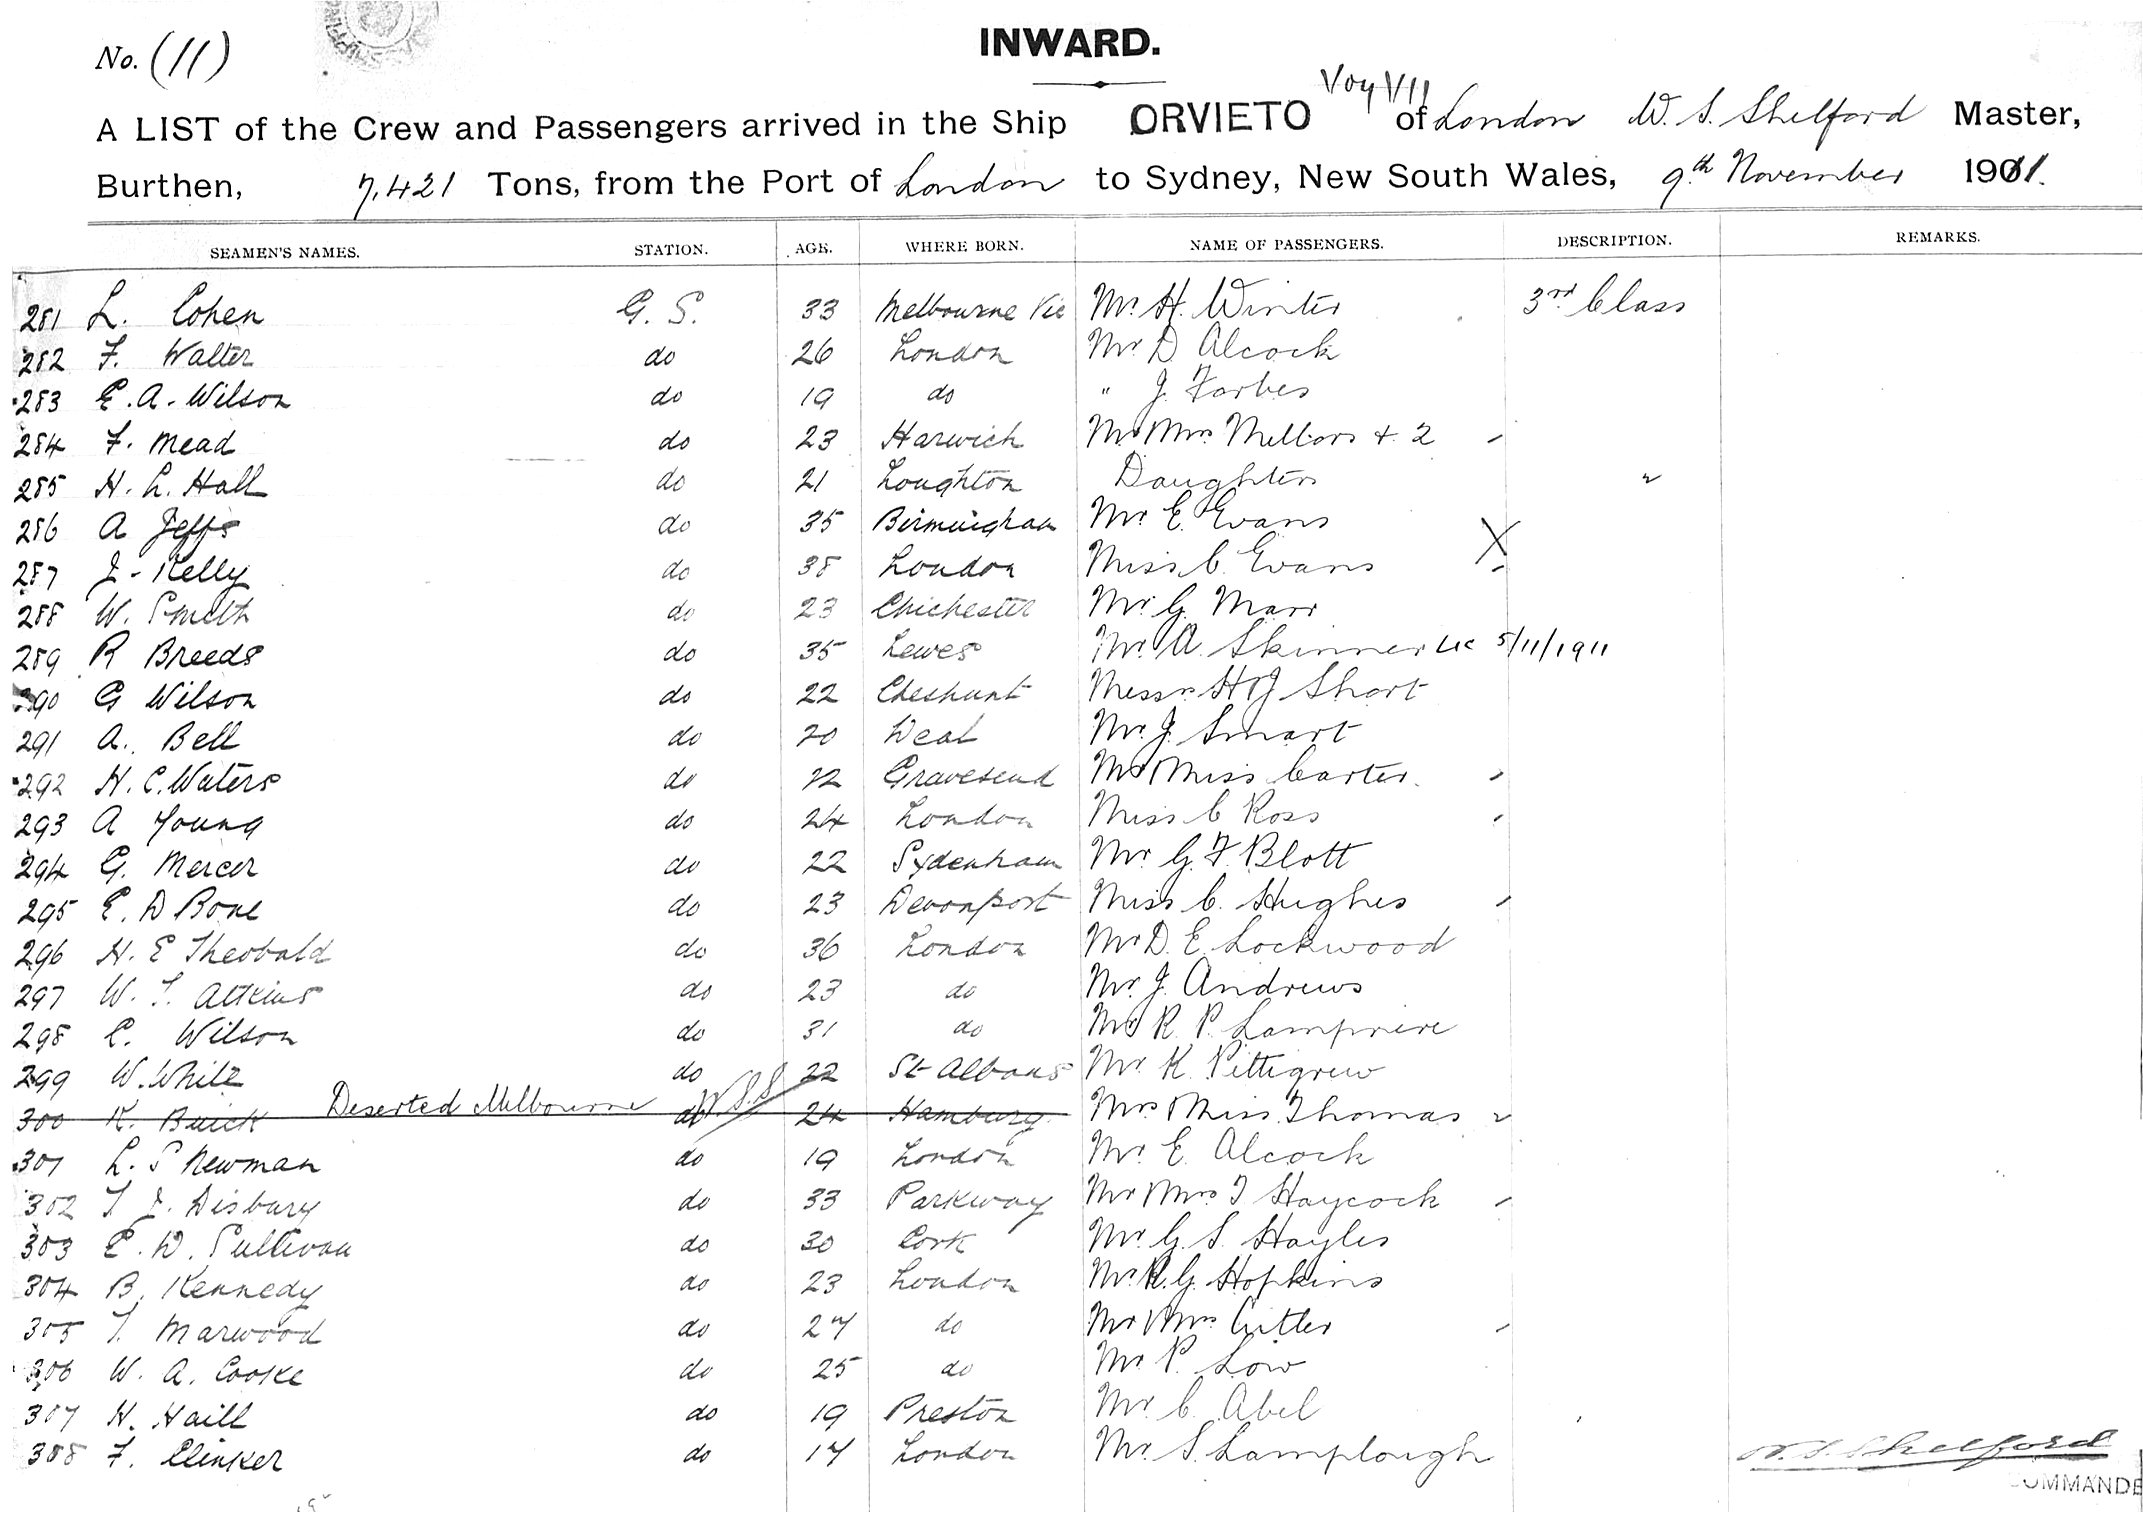 No. (11)
INWARD.
Voy VII
A LIST of the Crew and Passengers arrived in the Ship ORVIETO of London W. S. Shelford Master,
Burthen, 7,421 Tons, from the Port of London to Sydney, New South Wales, 9th November 1911.
SEAMEN'S NAMES. STATION. AGE. WHERE BORN. NAME OF PASSENGERS. DESCRIPTION. REMARKS.
281 L. Cohen G. S. 33 Melbourne Vic Mr. H. Winter 3rd Class
282 F. Walter do 26 London Mr D Alcock
283 E. A. Wilson do 19 do " J. Forbes
284 F. Mead do 23 Harwich Mr Mrs Mellors + 2
285 H. L. Hall do 21 Loughton Daughters "
286 A Jeffs do 35 Birmingham Mr E. Evans X
287 J. Kelly do 38 London Miss C. Evans
288 W. Smith do 23 Chichester Mr. G. Marr
289 R Breeds do 35 Lewes Mr. A. Skinner 5/11/1911
290 G Wilson do 22 Cheshunt Messrs H & J Short
291 A. Bell do 20 Deal Mr. J. Smart
292 H. C. Waters do 22 Gravesend Mr & Miss Carter
293 A Young do 24 London Miss C Ross
294 G. Mercer do 22 Sydenham Mr G. F. Blott
295 E. D Bone do 23 Devonport Miss C. Hughes
296 H. E Theobald do 36 London Mr D. E. Lockwood
297 W. T. Attkins do 23 do Mr. J. Andrews
298 E. Wilson do 31 do Mr R. P. Lampriere
299 W. White do 22 St Albans Mr K. Pittigrew
300 K. Buick Deserted Melbourne W.S.S do 24 Hamburg Mrs & Miss Thomas
301 L. S Newman do 19 London Mr. E. Alcock
302 T J. Disbury do 33 Parkway Mr & Mrs T Haycock
303 E. D. Sullivan do 30 Cork Mr. G. S. Hayles
304 B. Kennedy do 23 London Mr. R. G. Hopkins
305 T. Marwood do 27 do Mr & Mrs Cutler
306 W. A. Cooke do 25 do Mr. P. Low
307 H. Haill do 19 Preston Mr. C. Abel
308 F. Clinker do 17 London Mr. S. Lamplough
W. S. Shelford
COMMANDE